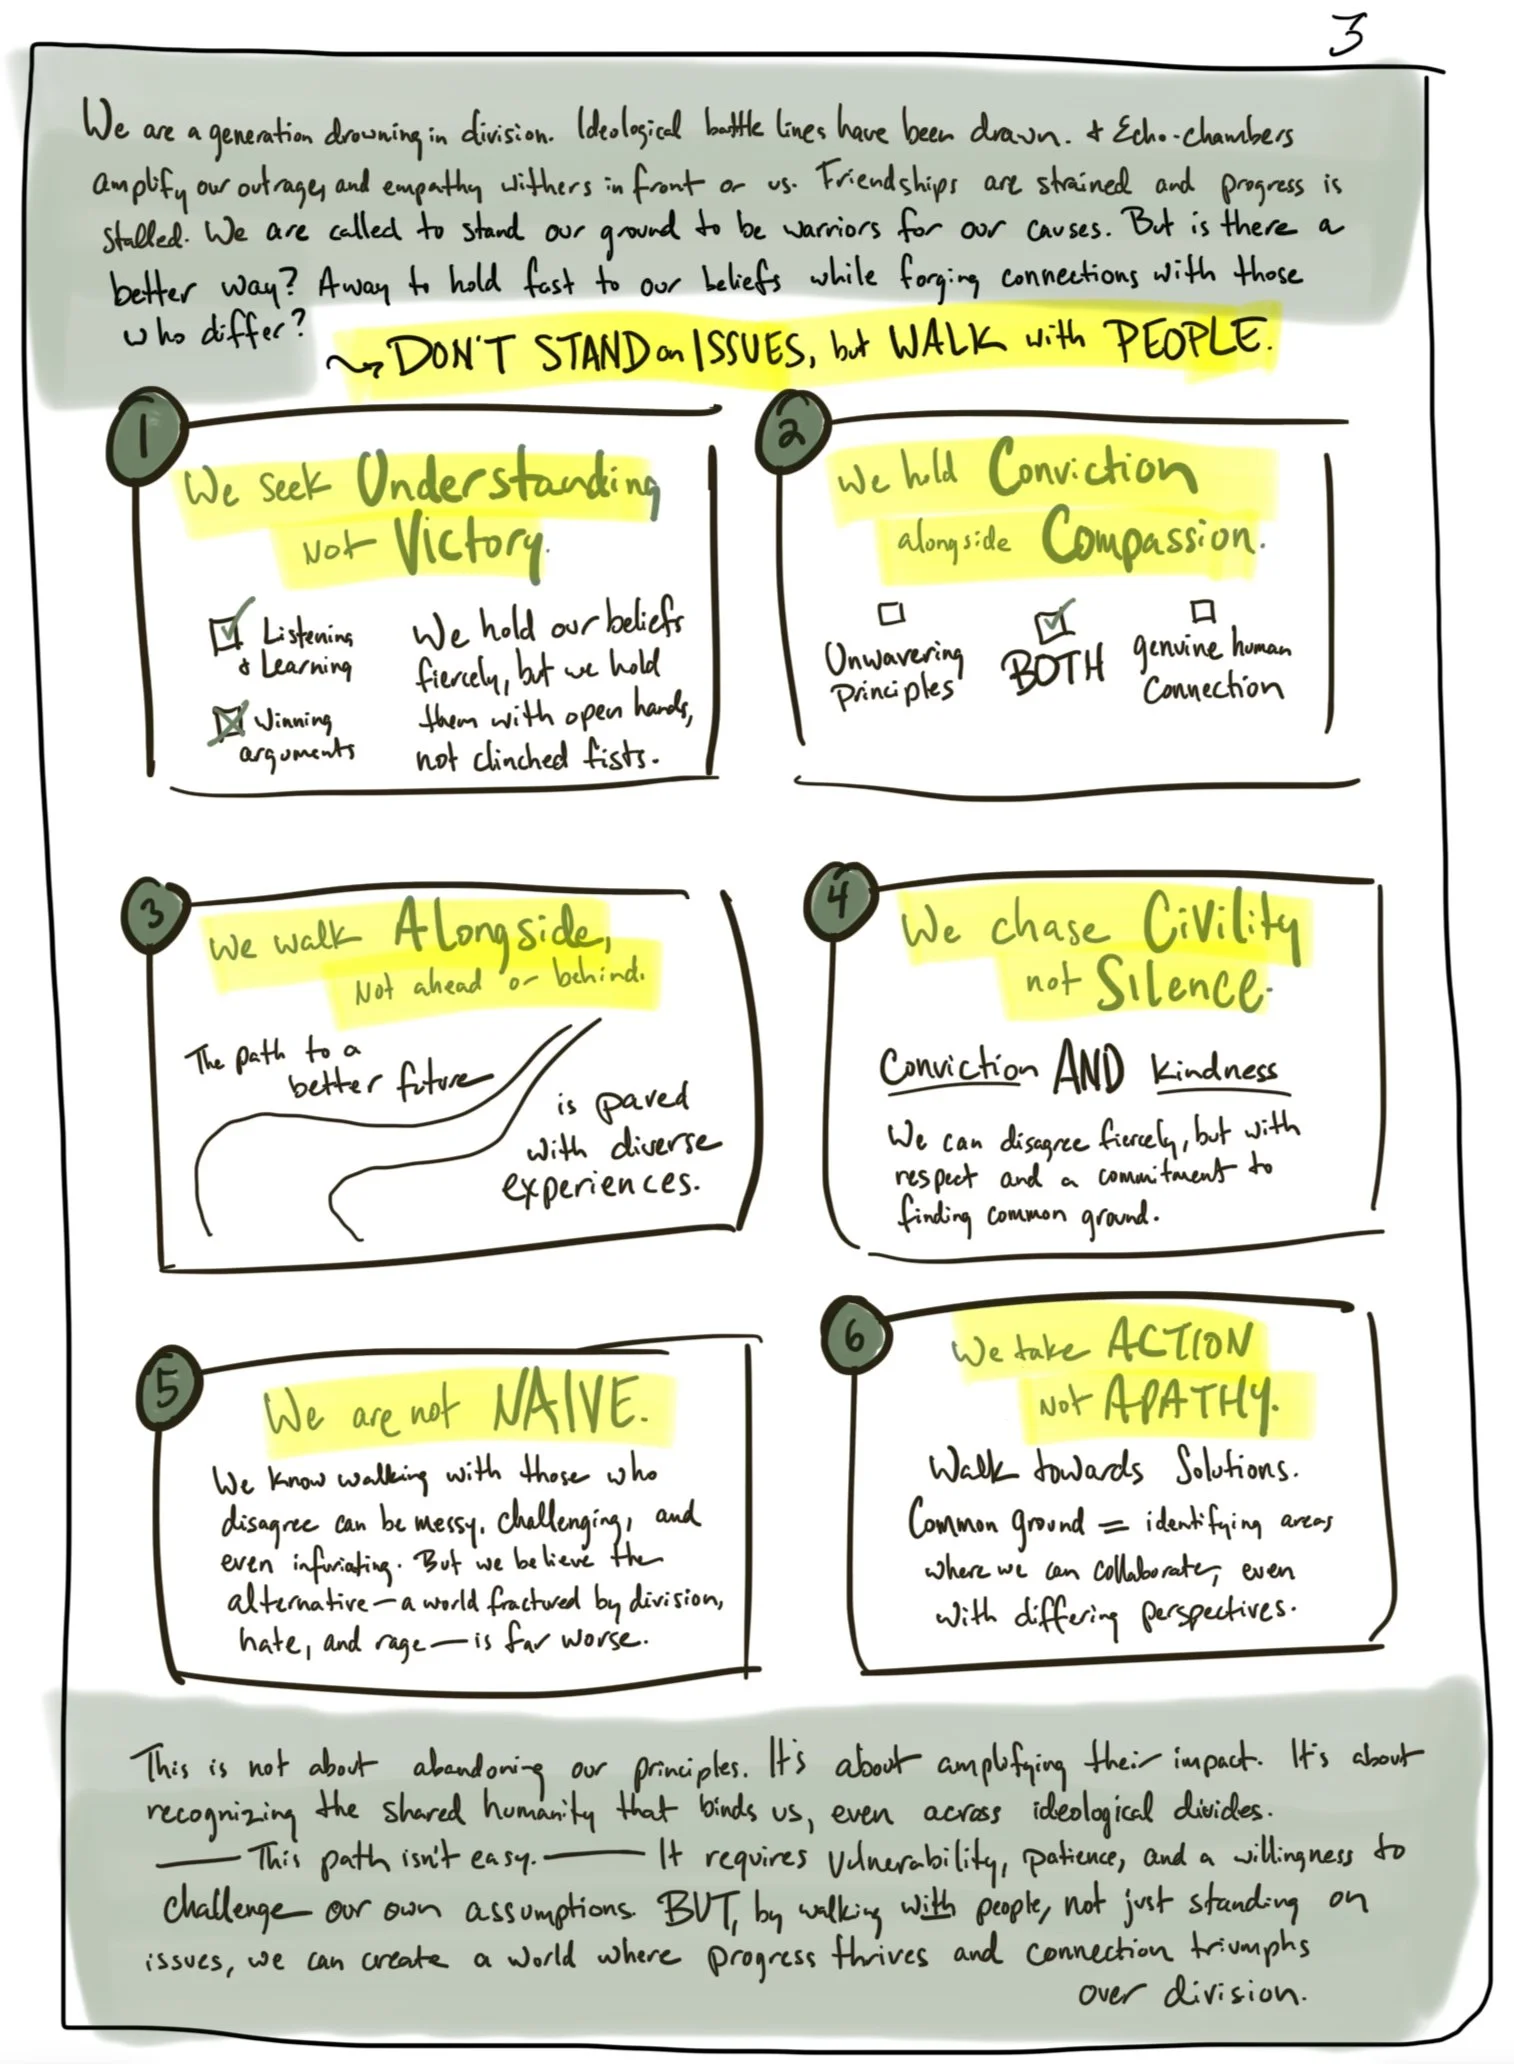 3
We are a generation drowning in division. Ideological battle lines have been drawn. & Echo-chambers
amplify our outrage, and empathy withers in front or us. Friendships are strained and progress is
stalled. We are called to stand our ground to be warriors for our causes. But is there a
better way? A way to hold fast to our beliefs while forging connections with those
who differ?
DON'T STAND on ISSUES, but WALK with PEOPLE.
1
We seek Understanding
not Victory.
Listening
& Learning
Winning
arguments
We hold our beliefs
fiercely, but we hold
them with open hands,
not clinched fists.
2
We hold Conviction
alongside Compassion.
Unwavering
Principles
BOTH
genuine human
Connection
3
We walk Alongside,
Not ahead or behind.
The path to a
better future
is paved
with diverse
experiences.
4
We chase Civility
not Silence.
Conviction AND kindness
We can disagree fiercely, but with
respect and a commitment to
finding common ground.
5
We are not NAIVE.
We know walking with those who
disagree can be messy, challenging, and
even infuriating. But we believe the
alternative — a world fractured by division,
hate, and rage — is far worse.
6
We take ACTION
Not APATHY.
Walk towards Solutions.
Common ground = identifying areas
where we can collaborate, even
with differing perspectives.
This is not about abandoning our principles. It's about amplifying their impact. It's about
recognizing the shared humanity that binds us, even across ideological divides.
— This path isn't easy. — It requires vulnerability, patience, and a willingness to
challenge our own assumptions. BUT, by walking with people, not just standing on
issues, we can create a world where progress thrives and connection triumphs
over division.